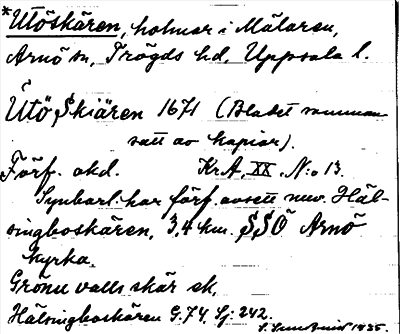 *Utöskären, holmar i Mälaren,
Arnö sn, Trögds hd, Uppsala l.
Utö Skiären 1671 (Bladet samman
satt av kopior).
Förf. okd. Kr.A. XX. N:o 13.
Synbarl. har förf. avsett nuv. Häl-
singboskären, 3,4 km. SSÖ Arnö
kyrka.
Grönu valls skär sk,
Hälsingboskären G.74, Sj. 242.
1935.